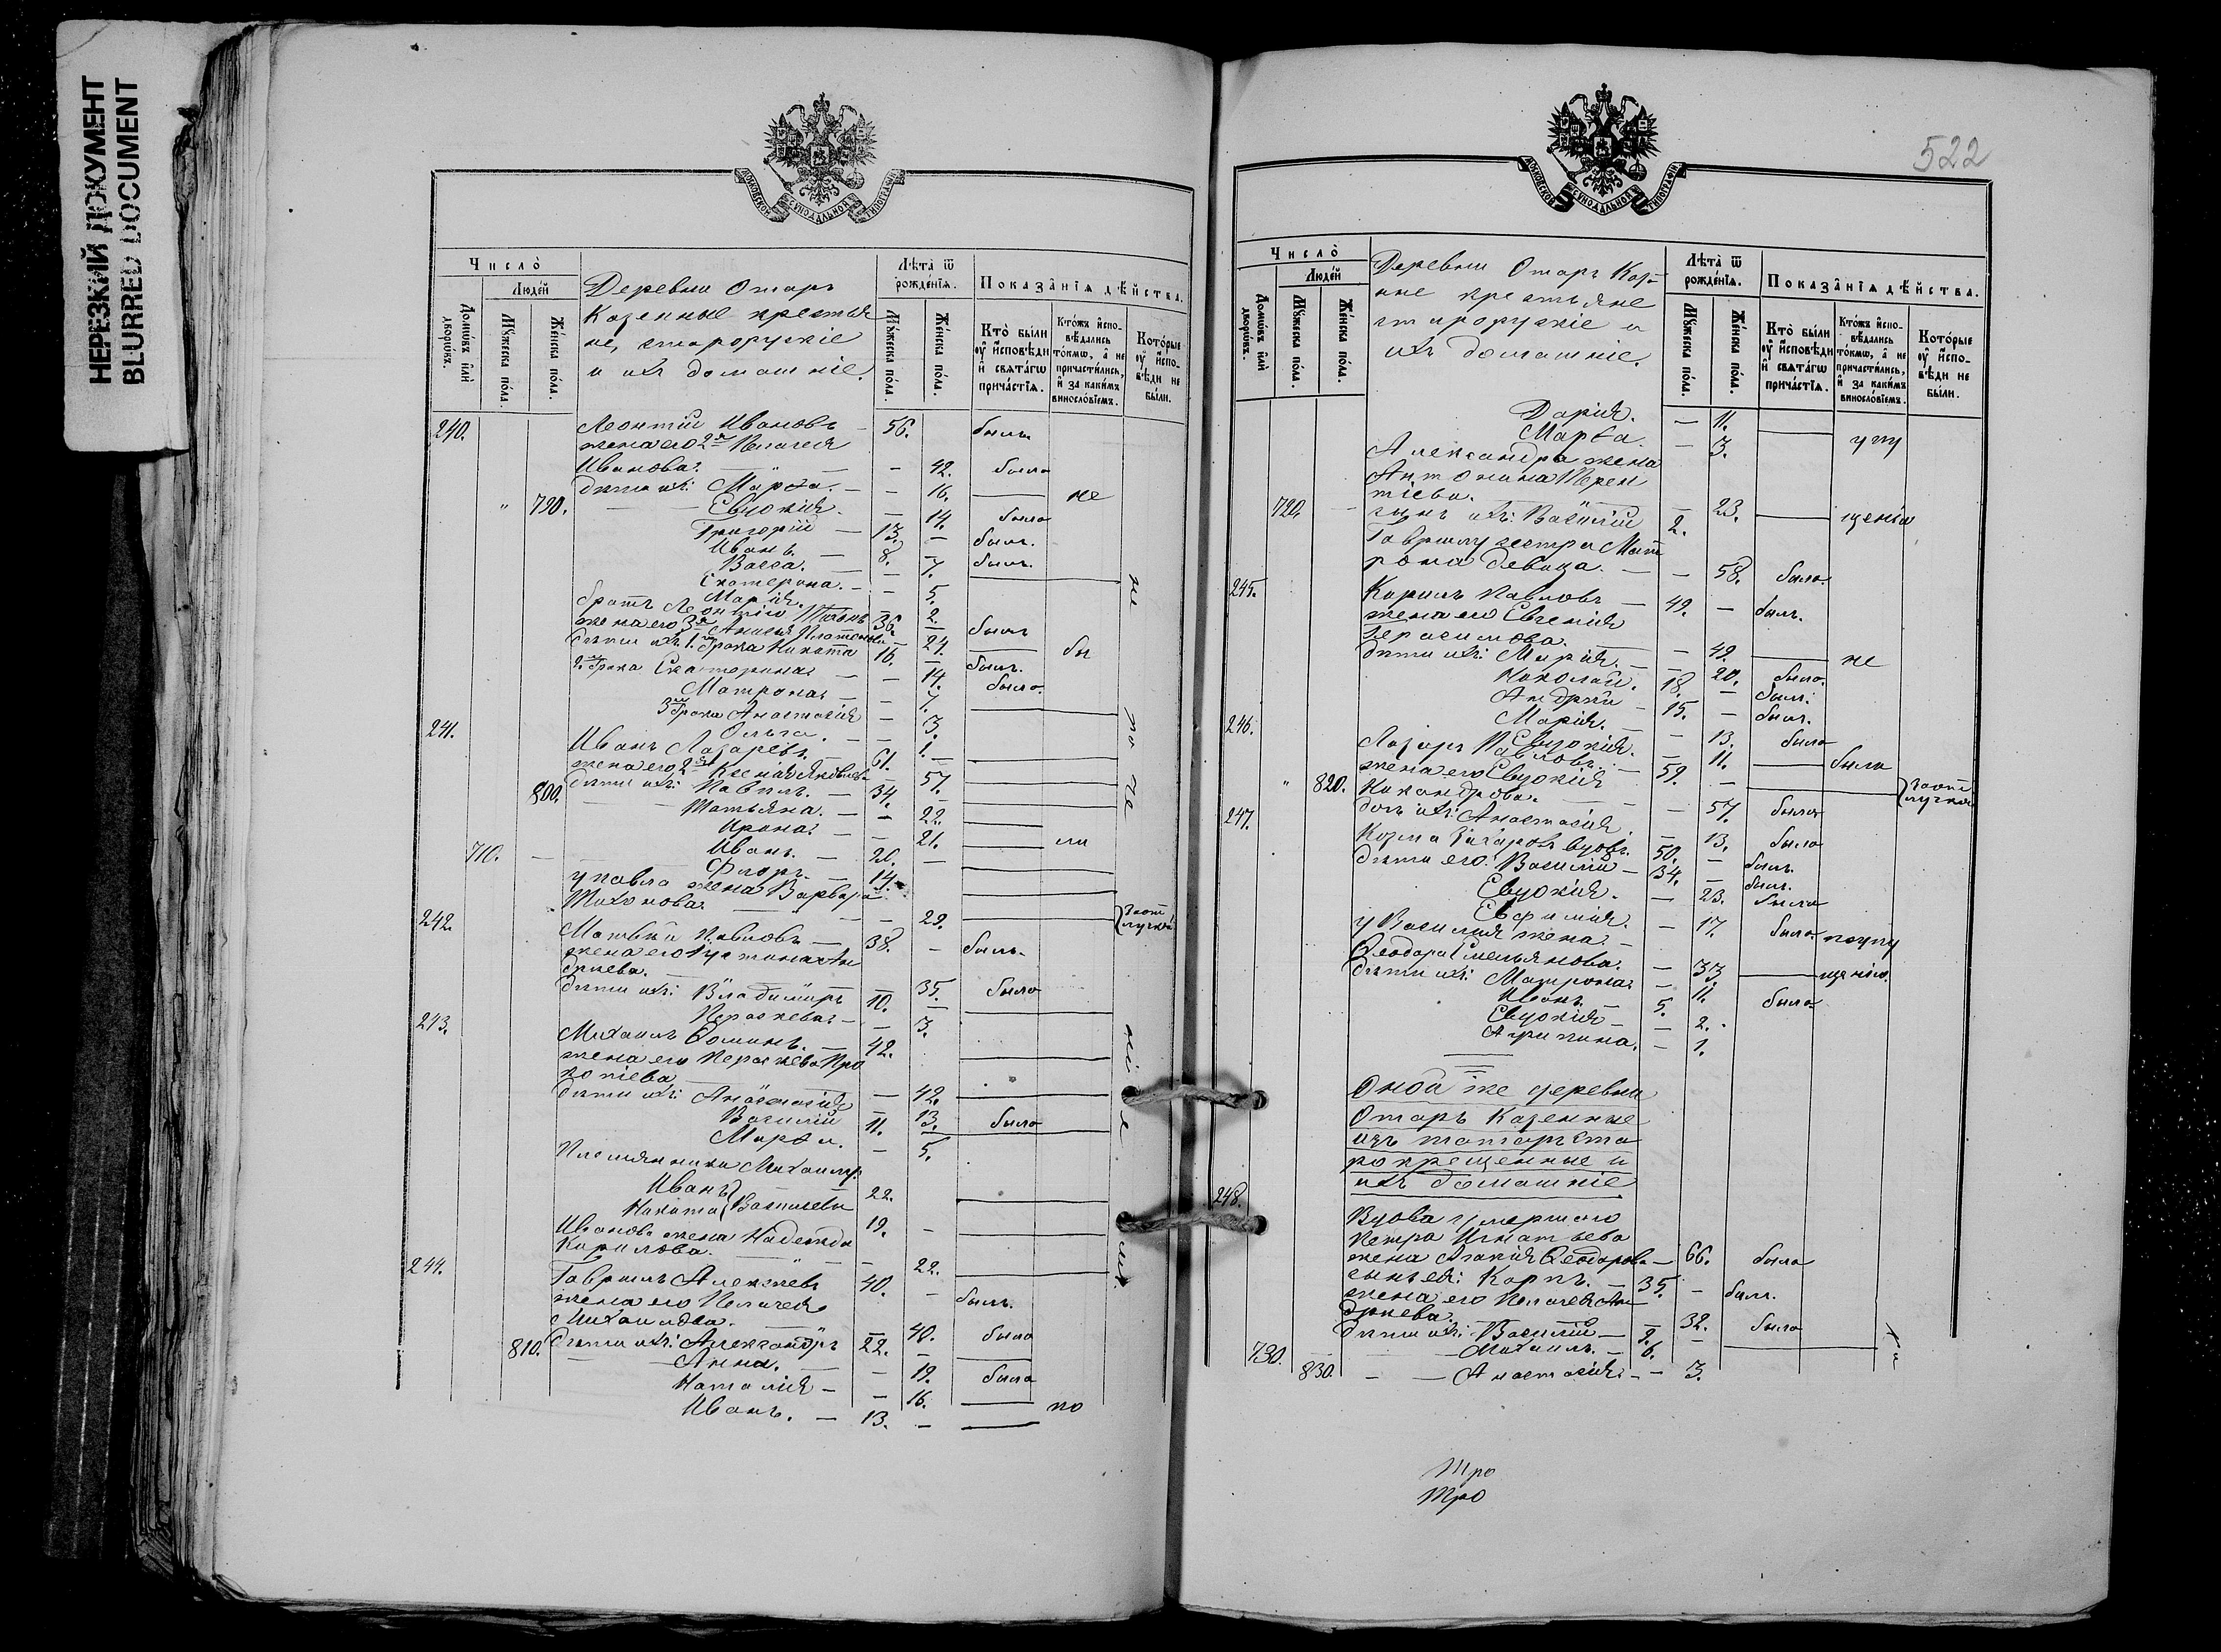 НЕРЕЗКИЙ ДОКУМЕНТ
BLURRED DOCUMENT
МОСКОВСКОЙ СѴНОДАЛЬНОЙ ТИПОГРАФІИ
Число̀
Людéй
Домѡ́въ и҆лѝ дворѡ́въ.
Мꙋ́жеска по́ла.
Же́нска по́ла.
Деревни Отаръ
Казенные крестья
не, старорускіе
и ихъ домашніе.
Лѣта̀ ѿ рождéнїѧ.
Мꙋ́жеска по́ла.
Же́нска по́ла.
Показа̑нїѧ дѣ́йства.
Кто̀ бы́ли ᲂу҆ и҆сповѣ́ди и҆ свѧта́гѡ прича́стїѧ.
Кто́жъ и҆спо-вѣ́дались то́кмѡ, а҆ не причасти́лись, и҆ за каки́мъ винослóвїемъ.
Кото́рые ᲂу҆ и҆спо-вѣ́ди не бы́ли.
240. Леонтій Ивановъ – 56. былъ
жена его 2я Пелагея
Иванова. – – 42. была
дѣти ихъ: Марѳа. – – 16. — не
" 790. Евдокія. – 14. была
Григорій – 13. – былъ.
Иванъ. – 8. – былъ.
Васса. – – 7.
Екатерина. – – 5.
Марія. – 2.
братъ Леонтію 36. – былъ
жена его 3я Анисья 24. — бы
дѣти ихъ 1го брака Никита 16. – былъ.
2го брака Екатерина – – 14. была.
Матрона – – 7.
3го брака Анастасія – 3.
Ольга. – – 1.
241. Иванъ Лазаревъ. – 61. –
жена его 2я Ксенія 57.
дѣти ихъ: Павелъ. – 34.
800. Татьяна. – – 22.
Ирина. – – 21. — ли
710. Иванъ. – 20. –
Флоръ. – 14.
у Павла жена Варвара
Тихонова. – – 29.
242. Матвѣй Павловъ – 38. – былъ.
жена его Ан
дреева. – 35. была
дѣти ихъ: Владимиръ 10. –
Пераскева – – 3.
243. Михаилъ Ѳоминъ. – 42.
жена его Пераскева Про
копіева – 42.
дѣти ихъ: Анастасія – 13. была
Василій 11.
Марѳа. – 5.
Племянники Михаилу:
Иванъ 22.
Никита } Васильевы 19. –
Иванова жена Надежда
Кирилова. – – 22.
244. Гавріилъ Алексѣевъ 40. – былъ.
жена его Пелагея
Михайлова. – – 40. была
810. дѣти ихъ: Александръ 22. –
Анна. – 19. была
Наталія – – 16. —
Иванъ. – 13. – — по
522
МОСКОВСКОЙ СѴНОДАЛЬНОЙ ТИПОГРАФІИ
Число̀
Людéй
Домѡ́въ и҆лѝ дворѡ́въ.
Мꙋ́жеска по́ла.
Же́нска по́ла.
Деревни Отаръ Каз-
ные крестьяне
старорускіе и
ихъ домашніе.
Лѣта̀ ѿ рождéнїѧ.
Мꙋ́жеска по́ла.
Же́нска по́ла.
Показа̑нїѧ дѣ́йства.
Кто̀ бы́ли ᲂу҆ и҆сповѣ́ди и҆ свѧта́гѡ прича́стїѧ.
Кто́жъ и҆спо-вѣ́дались то́кмѡ, а҆ не причасти́лись, и҆ за каки́мъ винослóвїемъ.
Кото́рые ᲂу҆ и҆спо-вѣ́ди не бы́ли.
Дарія. – 11. — упу
Марѳа. – 3.
Александра жена
Антонина Терен
тіева. – 23. — щенію
720. сынъ ихъ: Василій 2.
Гавріилу сестра Мат
рона девица. – – 58. была.
245. Кирилъ Павловъ – 49. – былъ.
жена его Евгенія
Герасимова. – 49. — не
дѣти ихъ: Марія. – – 20. была.
Николай. 18. – былъ.
Андрей – 15. – былъ.
Марія. – – 13. была
Евдокія. – 11. — была
246. Лазарь Павловъ. – 59. –
жена его Евдокія
" 820. Никандрова. – – 57. была
дочь ихъ: Анастасія. – 13. была
247. Козма Захаровъ вдовъ. 50. – былъ.
дѣти его: Василій – 34. – былъ.
Евдокія. – 23. была
Евфимія. – 17. была. по упу
у Василія жена –
Ѳеодора Емельянова. – 33. — щенію.
дѣти ихъ: Матрона – 11. была
Иванъ – 5.
Евдокія – – 2.
Агрипина. – 1.
Оной же деревни
Отаръ Казенные
изъ татаръ ста
рокрещенные и
ихъ домашніе
248. Вдова умершаго
Петра Игнатьева
жена Агапія Ѳеодорова – 66. была
сынъ ея: Карпъ. – 35. – былъ.
жена его Пелагея Ан
дреева. – 32. была
дѣти ихъ: Василій – 8. –
730. Михаилъ. – 6.
830. – – Анастасія – – 3.
Тро
Тро